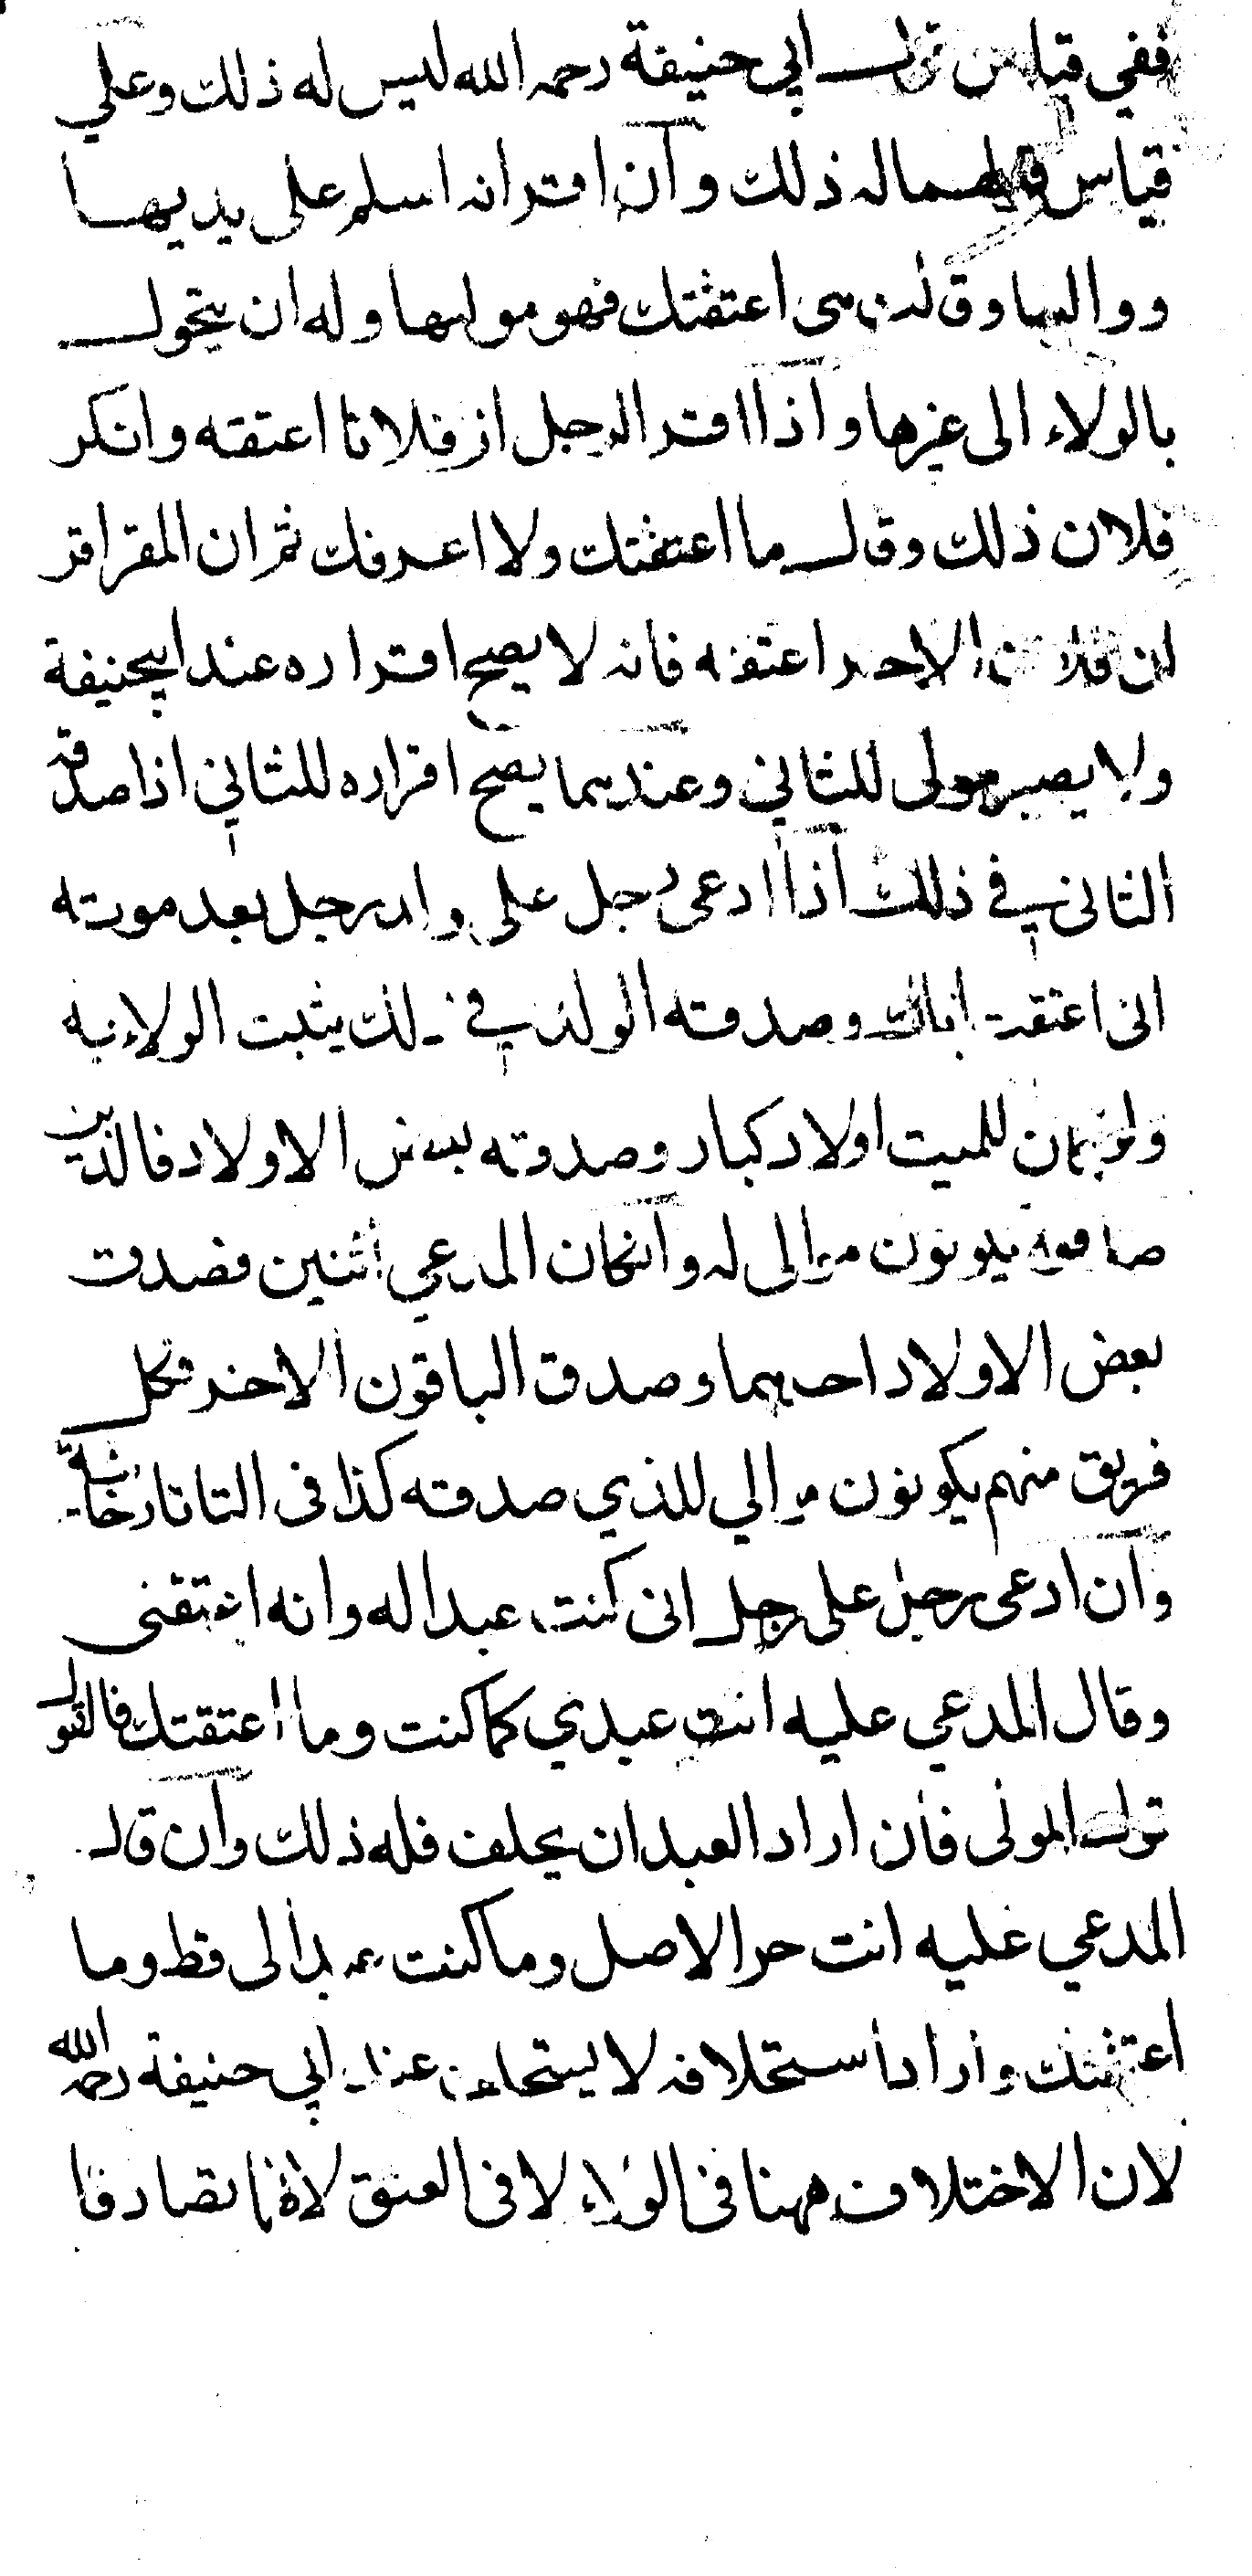 ففي قياس قول ابي حنيفة رحمه الله ليس له ذلك وعلي
قياس قولهما له ذلك وان اقر انه اسلم على يديهما
ووالهما وقالت بنى اعتقتك فهو مولهما وله ان يتحول
بالولاء الى غيرها واذا اقر الرجل ان فلانا اعتقه وانكر
فلان ذلك وقال ما اعتقتك ولا اعرفك ثم ان المقر اقر
ان فلان الاخر اعتقه فانه لا يصح اقراره عند ابيحنيفة
ولا يصير مولى للثاني وعندهما يصح اقراره للثاني اذا صدقه
الثاني في ذلك اذا ادعى رجل على ولد رجل بعد موته
انى اعتقت اباك وصدقته الولد في ذلك يثبت الولاء به
ولو كان للميت اولاد كبار وصدقته بعض الاولاد فالذين
صدقوه يكونون موالى له وانكان المدعي اثنين فصدقت
بعض الاولاد احدهما وصدق الباقون الاخر فكل
فريق منهم يكونون موالي للذي صدقته كذا فى التاتارخانية
وان ادعى رجل على رجل انى كنت عبدا له وانه اعتقنى
وقال المدعي عليه انت عبدي كما كنت وما اعتقتك فالقول
قول المولى فان اراد العبد ان يحلف فله ذلك وان قال
المدعي عليه انت حر الاصل وما كنت عبدا لى قط وما
اعتقتك واراد استحلافه لا يستحلف عند ابي حنيفة رحمه الله
لان الاختلاف ههنا فى الولاء لا فى العتق لانهما تصادقا